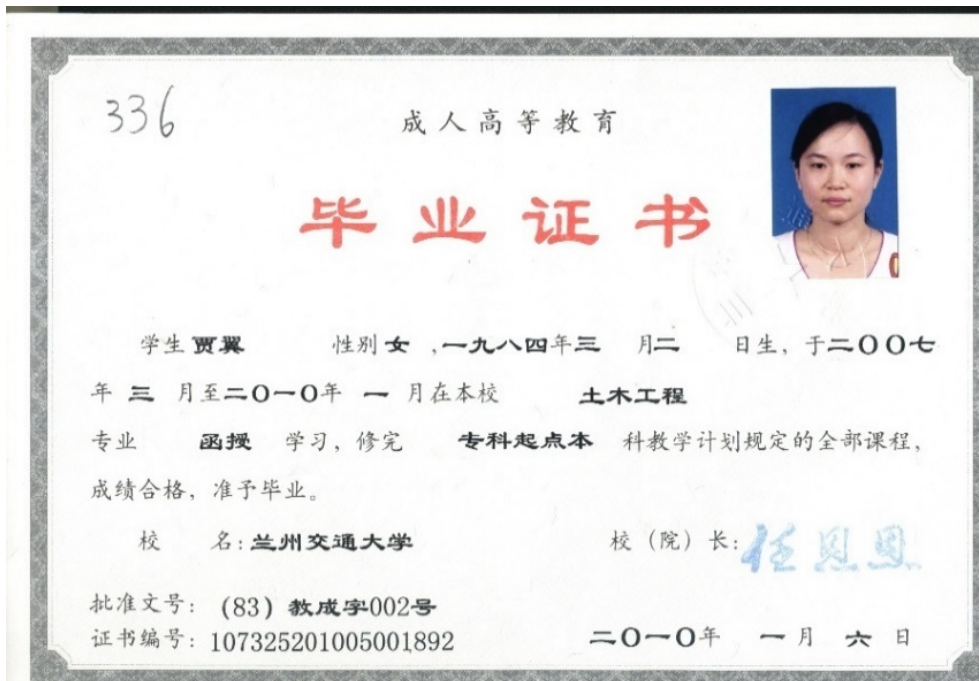 336
成人高等教育
毕业证书
学生 贾翼 性别 女 ,一九八四年 三 月二 日生, 于二〇〇七
年 三 月至二〇一〇年 一 月在本校 土木工程
专业 函授 学习, 修完 专科起点本 科教学计划规定的全部课程,
成绩合格, 准予毕业。
校 名: 兰州交通大学 校 (院) 长: 任恩恩
批准文号: (83) 教成字002号
证书编号: 107325201005001892
二〇一〇年 一 月 六 日